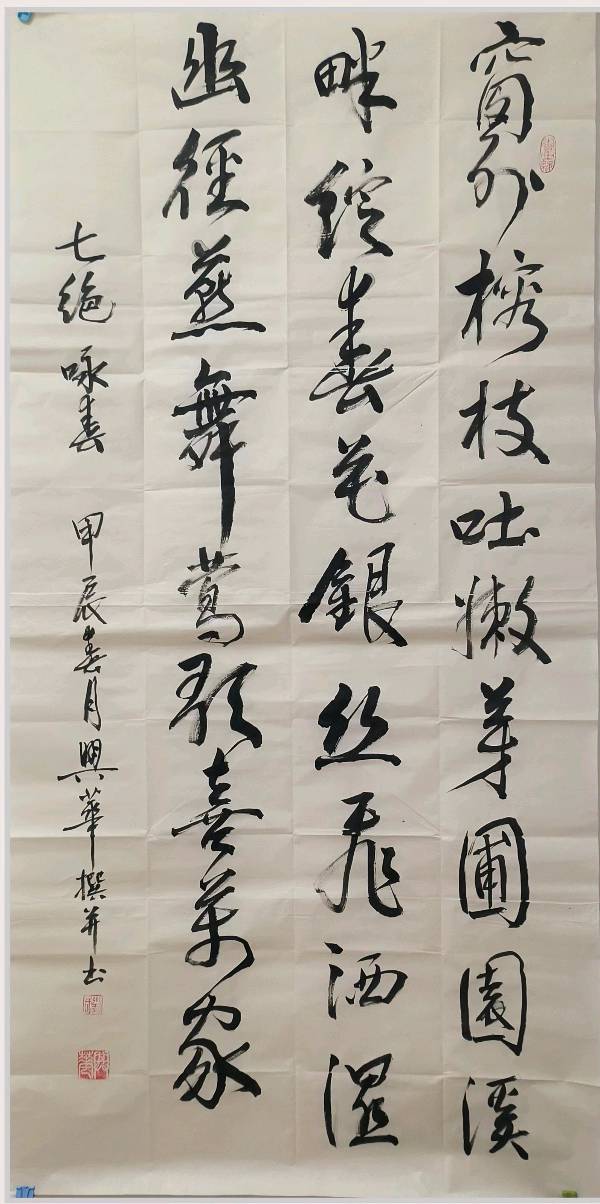 窗外榕枝吐嫩芽圃園溪
畔綻春花銀丝飛洒湿
幽徑燕舞鶯歌喜萬家
七絶 咏春 甲辰春月興華撰并书